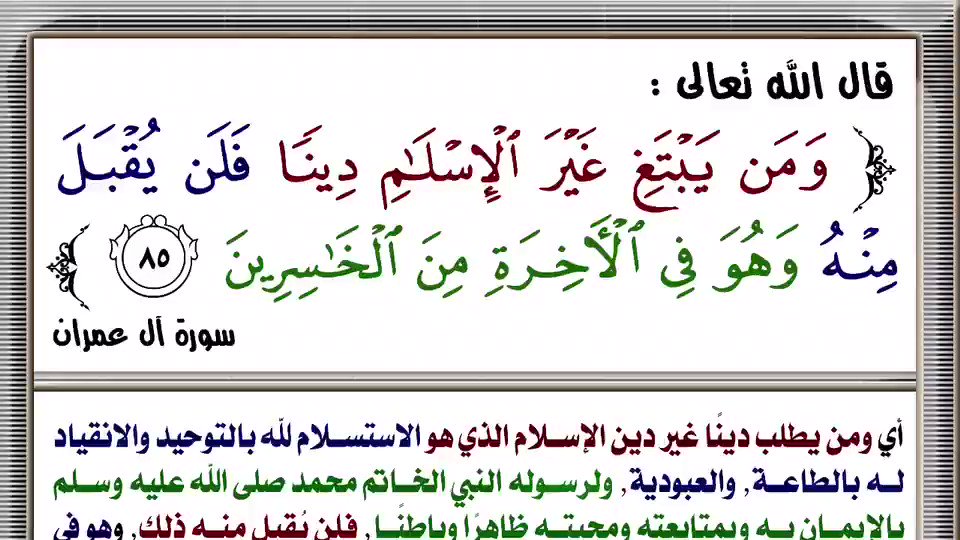 قال الله تعالى :
﴿ وَمَن يَبْتَغِ غَيْرَ ٱلْإِسْلَٰمِ دِينًا فَلَن يُقْبَلَ
مِنْهُ وَهُوَ فِي ٱلْأَخِرَةِ مِنَ ٱلْخَٰسِرِينَ ٨٥ ﴾
سورة آل عمران
أي ومن يطلب دينًا غير دين الإسلام الذي هو الاستسلام لله بالتوحيد والانقياد
له بالطاعة, والعبودية, ولرسوله النبي الخاتم محمد صلى الله عليه وسلم
بالإيمان به وبمتابعته ومحبته ظاهرًا وباطنًا, فلن يُقبل منه ذلك, وهو في